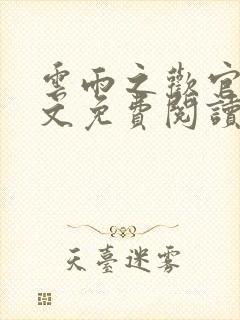 雲雨之歡官
文免費閱讀
天臺迷霧